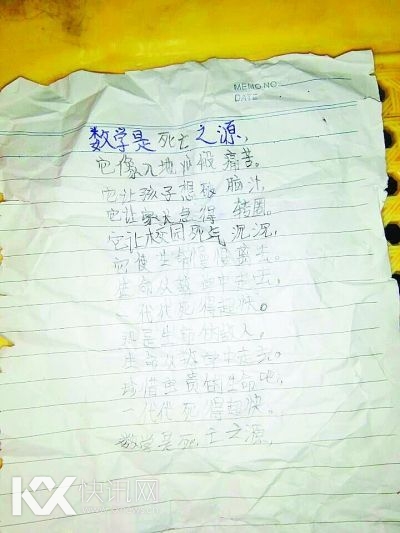 MEMO NO.
DATE
数学是死亡之源,
它像入地狱般痛苦。
它让孩子想破脑汁,
它让家长急得转圈。
它让校园死气沉沉,
它使生命慢慢离去。
生命从数学中走去,
一代代死得超快。
是生命 敌人,
生命从数学中走完。
珍惜宝贵的生命吧,
一代代死得超快。
数学是死亡之源,
KX快讯网